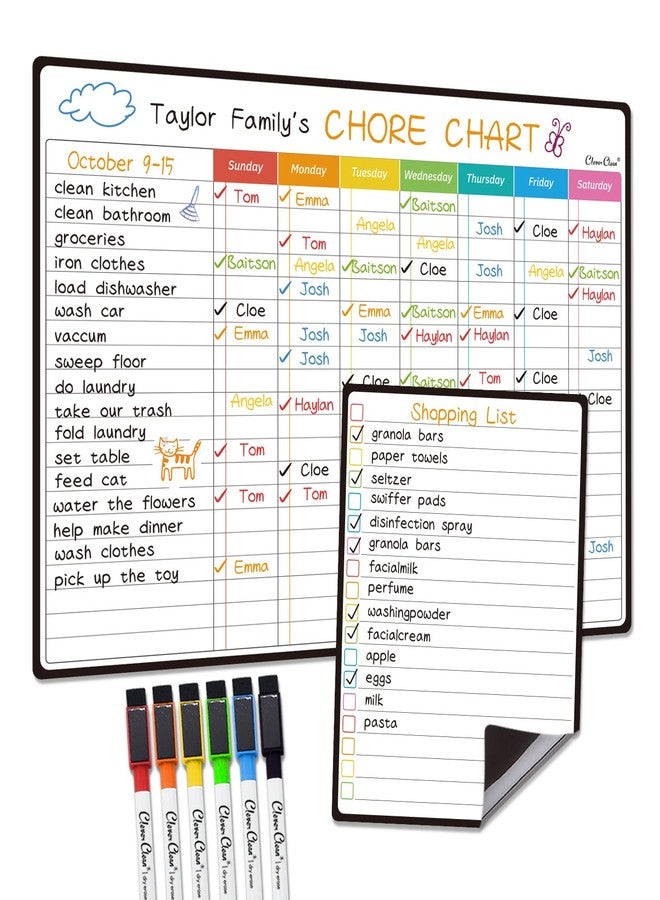 Taylor Family's CHORE CHART
Clever Clean®
October 9-15 Sunday Monday Tuesday Wednesday Thursday Friday Saturday
clean kitchen ✓ Tom ✓ Emma ✓ Baitson
clean bathroom Angela Josh ✓ Cloe ✓ Haylan
groceries ✓ Tom Angela
iron clothes ✓ Baitson Angela ✓ Baitson ✓ Cloe Josh Angela ✓ Baitson
load dishwasher ✓ Josh ✓ Haylan
wash car ✓ Cloe ✓ Emma ✓ Baitson ✓ Emma ✓ Cloe
vaccum ✓ Emma Josh Josh ✓ Haylan ✓ Haylan
sweep floor ✓ Josh Josh
do laundry ✓ Cloe ✓ Baitson ✓ Tom ✓ Cloe
take our trash Angela ✓ Haylan Cloe
fold laundry
set table ✓ Tom
feed cat ✓ Cloe
water the flowers ✓ Tom ✓ Tom
help make dinner
wash clothes Josh
pick up the toy ✓ Emma
Shopping List
✓ granola bars
paper towels
✓ seltzer
swiffer pads
✓ disinfection spray
✓ granola bars
facialmilk
perfume
✓ washingpowder
✓ facialcream
apple
✓ eggs
milk
pasta
Clever Clean® | dry erase
Clever Clean® | dry erase
Clever Clean® | dry erase
Clever Clean® | dry erase
Clever Clean® | dry erase
Clever Clean® | dry erase